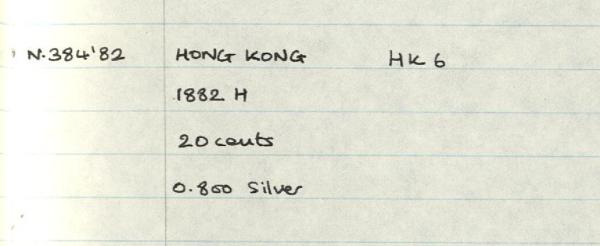 N.384'82 HONG KONG HK 6
1882 H
20 cents
0.800 Silver